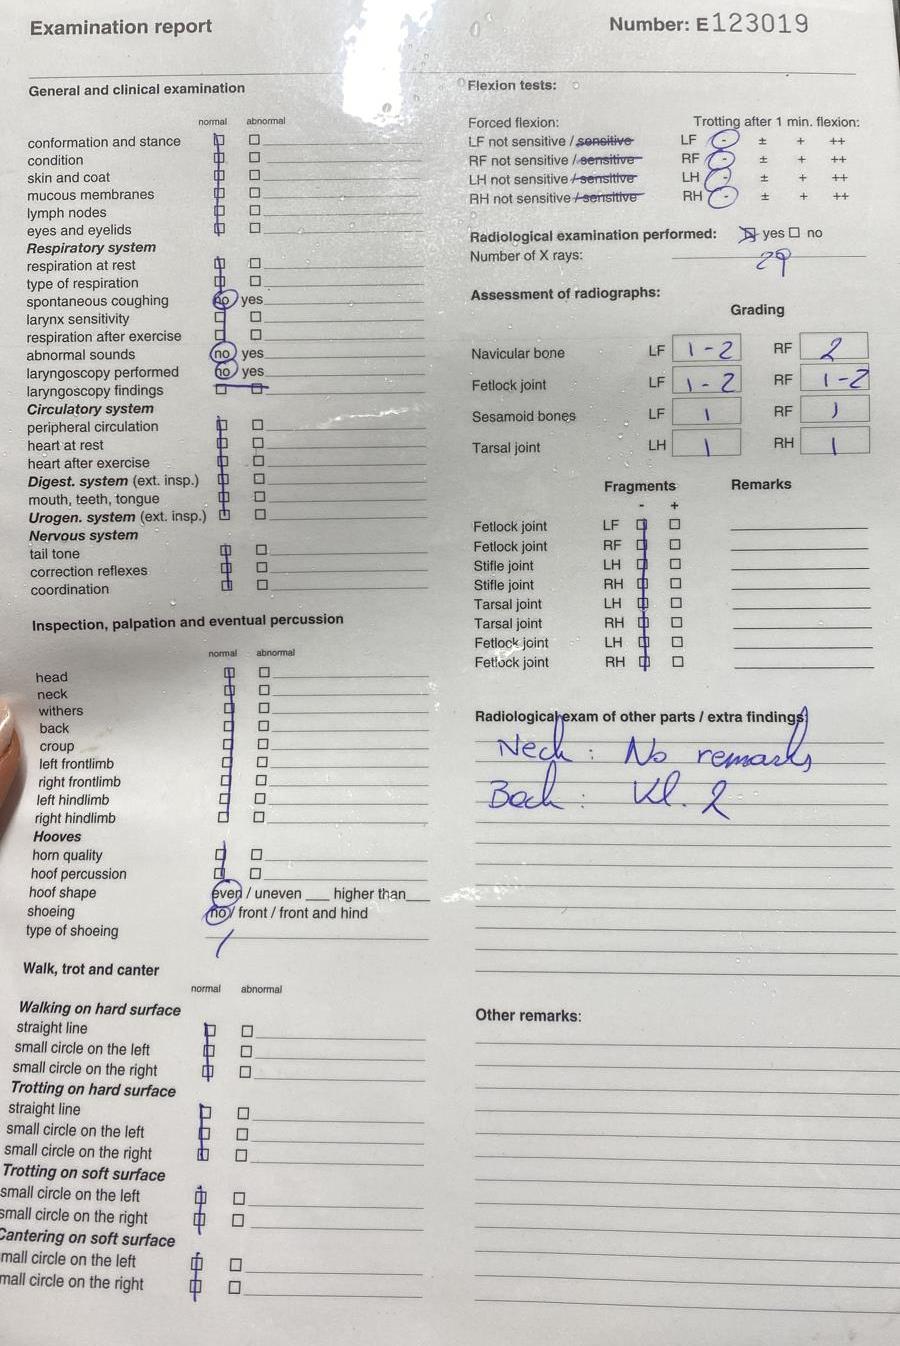 Examination report
Number: E 123019
General and clinical examination
normal abnormal
conformation and stance
condition
skin and coat
mucous membranes
lymph nodes
eyes and eyelids
Respiratory system
respiration at rest
type of respiration
spontaneous coughing no yes
larynx sensitivity
respiration after exercise
abnormal sounds no yes
laryngoscopy performed no yes
laryngoscopy findings
Circulatory system
peripheral circulation
heart at rest
heart after exercise
Digest. system (ext. insp.)
mouth, teeth, tongue
Urogen. system (ext. insp.)
Nervous system
tail tone
correction reflexes
coordination
Inspection, palpation and eventual percussion
normal abnormal
head
neck
withers
back
croup
left frontlimb
right frontlimb
left hindlimb
right hindlimb
Hooves
horn quality
hoof percussion
hoof shape even / uneven ___ higher than ___
shoeing no / front / front and hind
type of shoeing /
Walk, trot and canter
normal abnormal
Walking on hard surface
straight line
small circle on the left
small circle on the right
Trotting on hard surface
straight line
small circle on the left
small circle on the right
Trotting on soft surface
small circle on the left
small circle on the right
Cantering on soft surface
mall circle on the left
mall circle on the right
Flexion tests:
Forced flexion: Trotting after 1 min. flexion:
LF not sensitive / sensitive LF - ± + ++
RF not sensitive / sensitive RF - ± + ++
LH not sensitive / sensitive LH - ± + ++
RH not sensitive / sensitive RH - ± + ++
Radiological examination performed: yes no
Number of X rays: 29
Assessment of radiographs:
Grading
Navicular bone LF 1-2 RF 2
Fetlock joint LF 1-2 RF 1-2
Sesamoid bones LF 1 RF 1
Tarsal joint LH 1 RH 1
Fragments Remarks
- +
Fetlock joint LF
Fetlock joint RF
Stifle joint LH
Stifle joint RH
Tarsal joint LH
Tarsal joint RH
Fetlock joint LH
Fetlock joint RH
Radiological exam of other parts / extra findings:
Neck: No remarks
Back: Kl. 2
Other remarks: